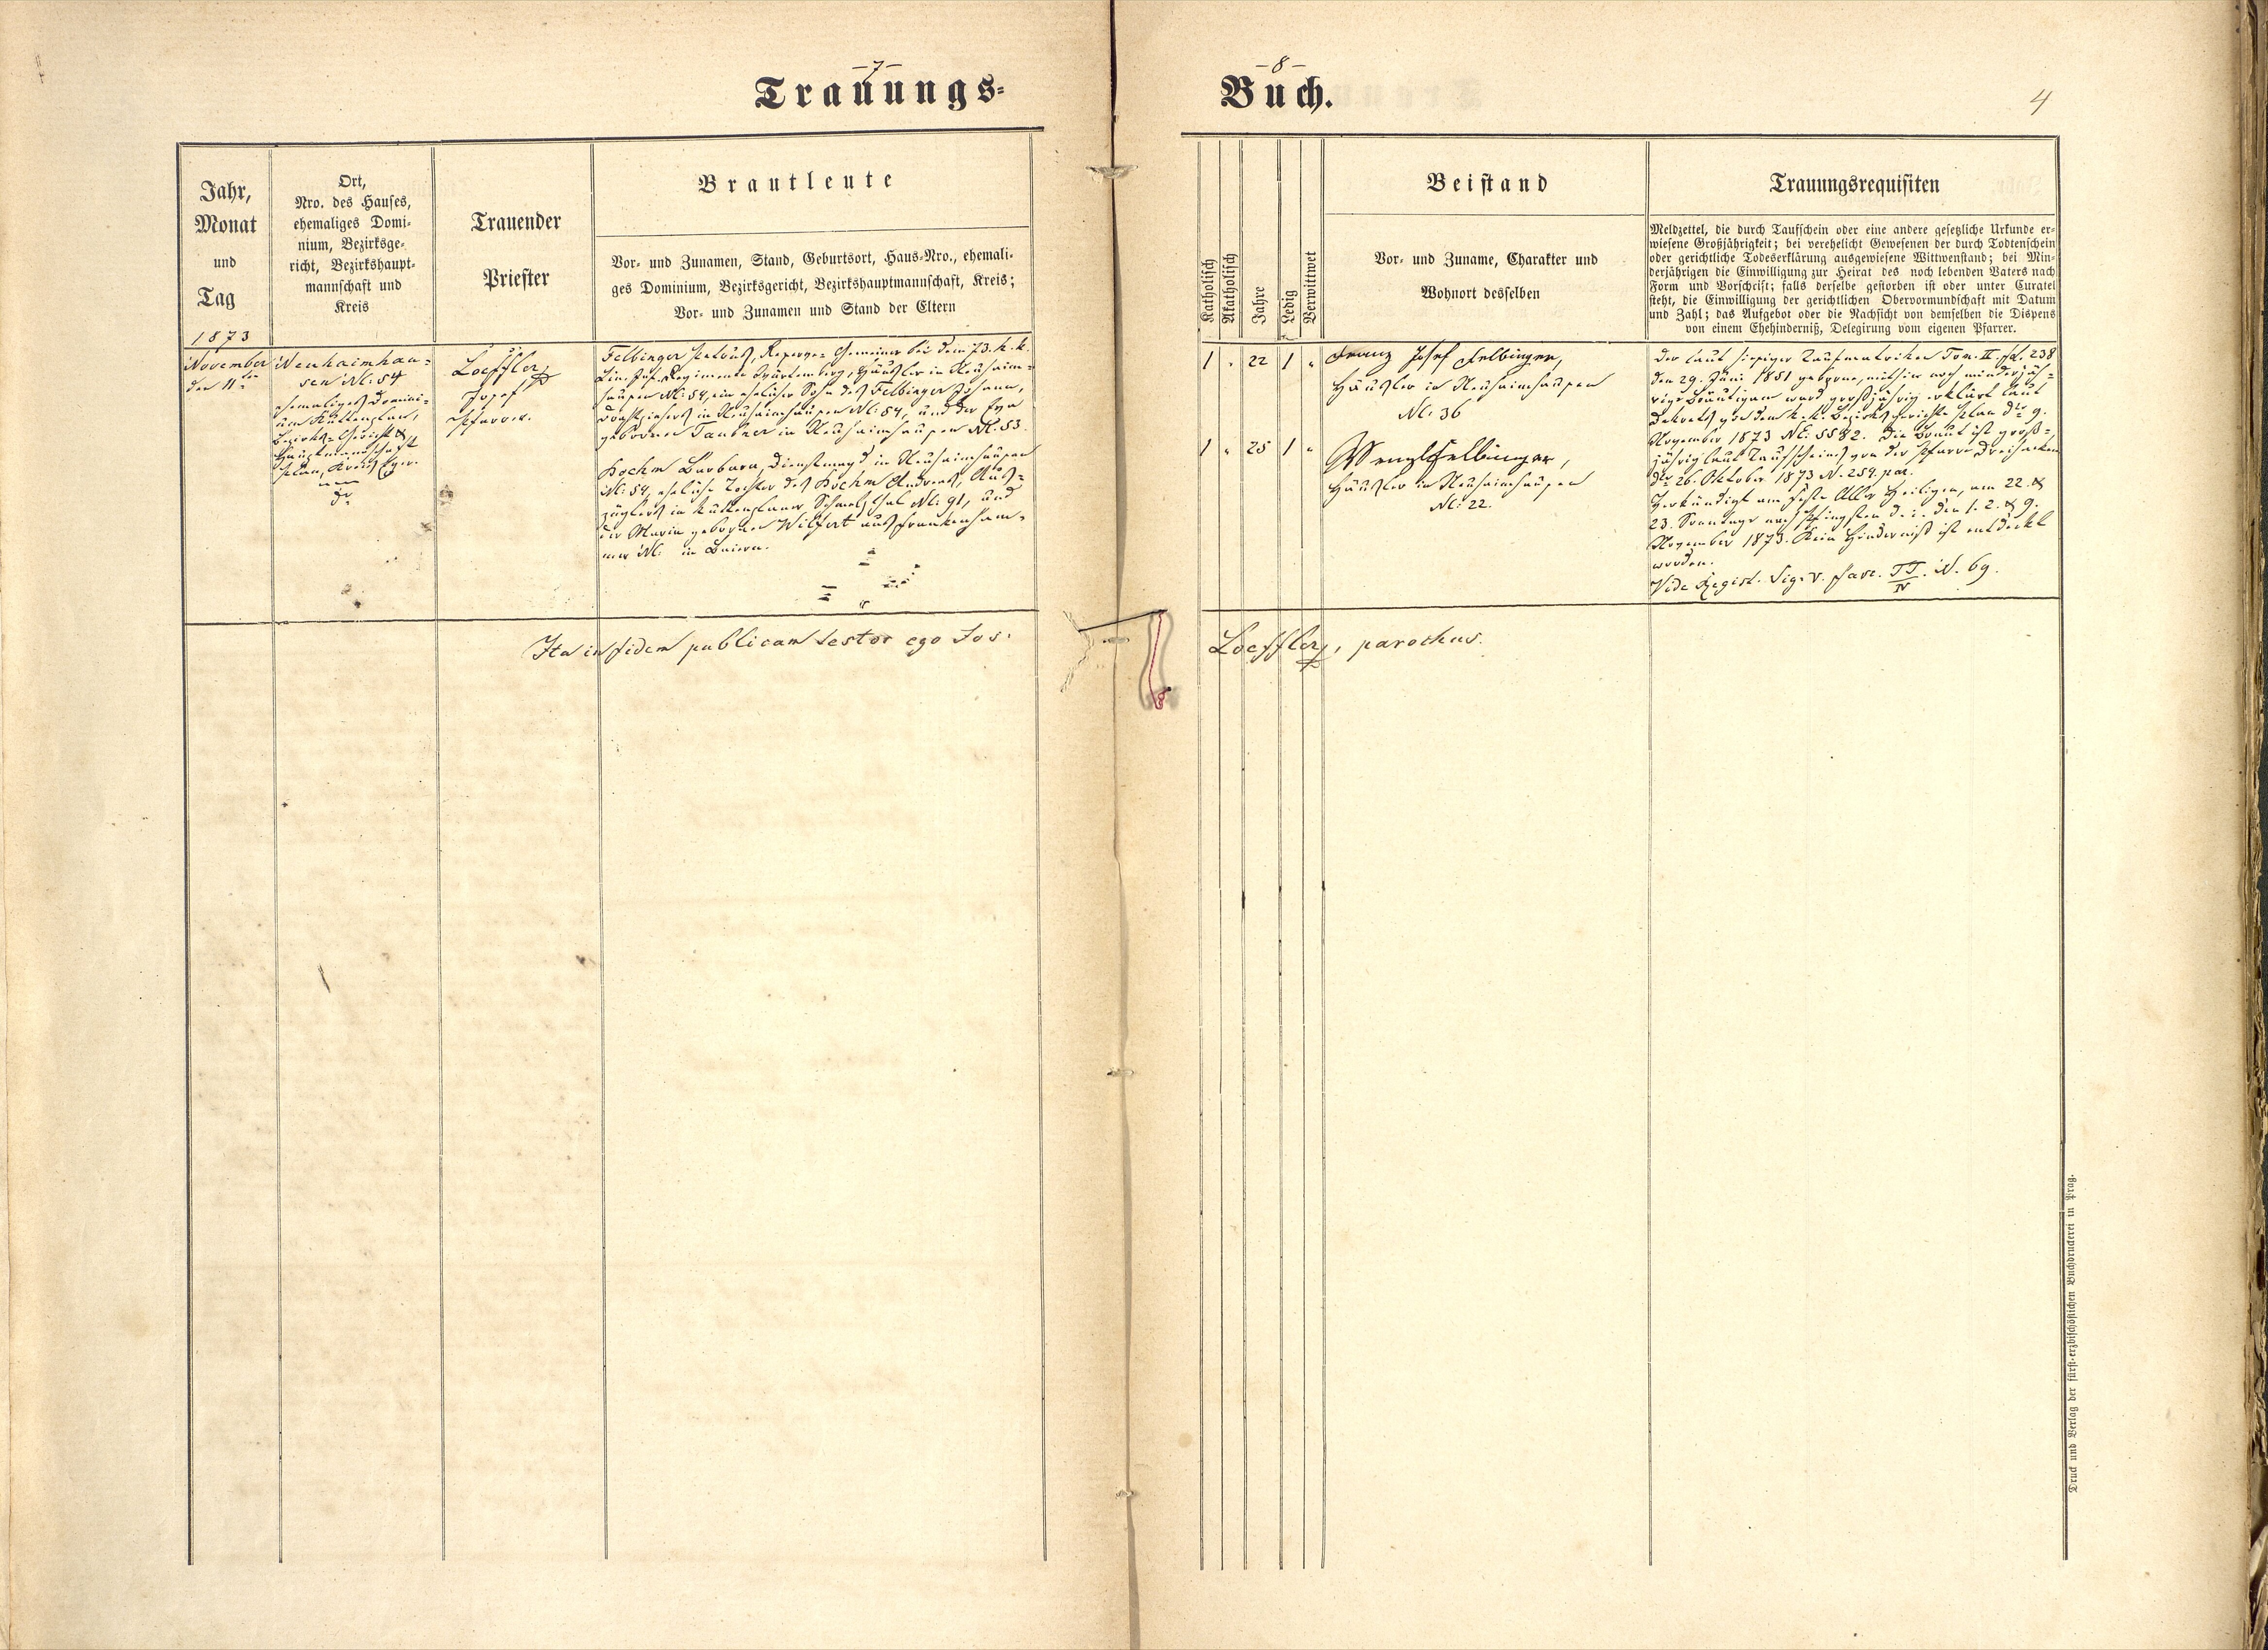 -7-
Trauungs-
Jahr,
Monat
und
Tag
Ort,
Nro. des Hauses,
ehemaliges Domi-
nium, Bezirksge-
richt, Bezirkshaupt-
mannschaft und
Kreis
Trauender
Priester
Brautleute
Vor- und Zunamen, Stand, Geburtsort, Haus-Nro., ehemali-
ges Dominium, Bezirksgericht, Bezirkshauptmannschaft, Kreis;
Vor- und Zunamen und Stand der Eltern
1873
November
den 11ten
Neuhaimhau-
sen N: 54
ehemaliges Domini-
um Kuttenplan,
Bezirks-Gericht &
Hauptmannschaft
Plan, Kreis Eger.
Loeffler
Josef
Pfarrer.
Felbinger Petrus, Reserve-Gemeiner bei dem 73. k. k.
Lin. Inf. Regimente Würtemberg, Häusler in Neuhaim-
hausen N: 54, ein ehelicher Sohn des Felbinger Johann,
in Neuhaimhausen N: 54, und der Eva
geborenen Taubner in Neuhaimhausen N: 53.
Boehm Barbara, Dienstmagd in Neuhaimhausen
N: 54, eheliche Tochter des Böhm Andreas, Aus-
züglers in Kuttenplaner Schmelzthal N: 91, und
der Maria geborenen Wilfert aus Frankenham-
mer N: in Baiern.
Ita in fidem publicam testor ego Jos.
-8-
Buch.
4
Katholisch
Akatholisch
Jahre
Ledig
Verwittwet
Beistand
Vor- und Zuname, Charakter und
Wohnort desselben
Trauungsrequisiten
Meldzettel, die durch Taufschein oder eine andere gesetzliche Urkunde er-
wiesene Großjährigkeit; bei verehelicht Gewesenen der durch Todtenschein
oder gerichtliche Todeserklärung ausgewiesene Wittwenstand; bei Min-
derjährigen die Einwilligung zur Heirat des noch lebenden Vaters nach
Form und Vorschrift; falls derselbe gestorben ist oder unter Curatel
steht, die Einwilligung der gerichtlichen Obervormundschaft mit Datum
und Zahl; das Aufgebot oder die Nachsicht von demselben die Dispens
von einem Ehehinderniß, Delegirung vom eigenen Pfarrer.
1 " 22 1 "
Franz Josef Felbinger,
Häusler in Neuhaimhausen
N: 36
1 " 25 1 "
Wenzl Felbinger,
Häusler in Neuhaimhausen
N: 22.
Der laut hiesiger Taufmatriken Tom. II. fol. 238
den 29. Juni 1851 geborne, mithin noch minderjäh-
rige Bräutigam ward großjährig erklärt laut
Dekrets von dem k. k. Bezirksgerichte Plan dto 9.
November 1873 N: 5582. Die Braut ist groß-
jährig laut Taufscheins von der Pfarre Dreihacken
dto 26. Oktober 1873 N. 259. par.
Verkündigt am Feste Aller Heiligen, am 22. &
23. Sonntage nach Pfingsten d. i. den 1. 2. & 9.
November 1873. Kein Hinderniß ist entdeckt
worden.
Vide Regist. Sig. v. Fasc. TT/IV. N. 69.
Loeffler, parochus.
Druck und Verlag der fürst-erzbischöflichen Buchdruckerei in Prag.